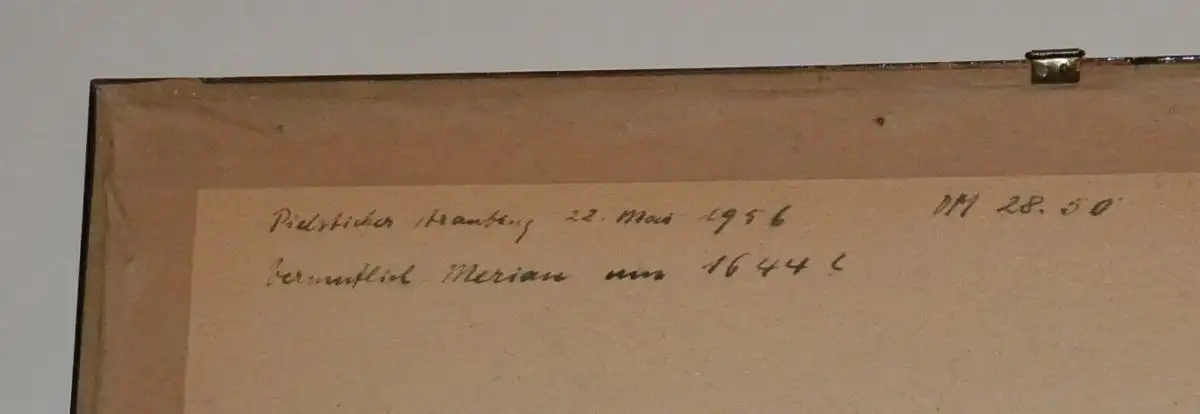 Pielsticker Straubing 22. Mai 1956 DM 28.50
vermutlich Merian um 1644